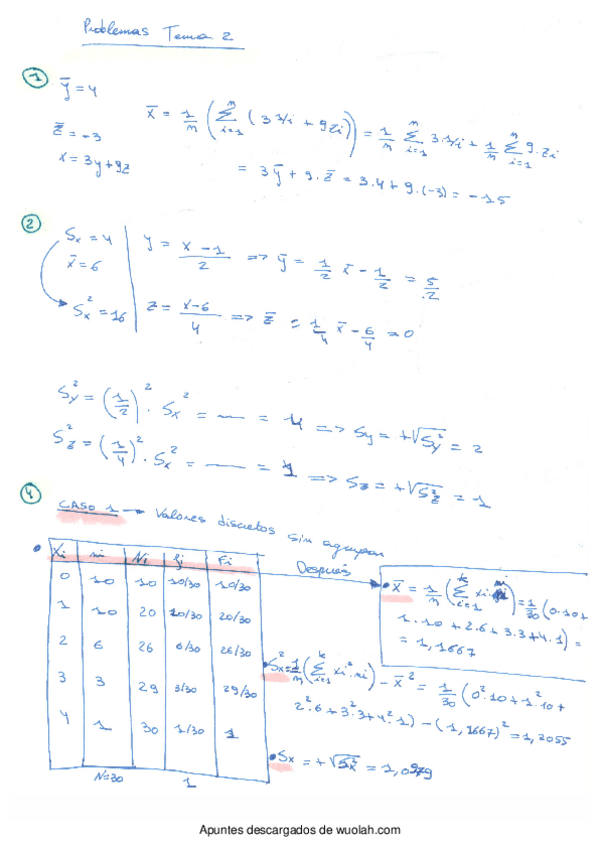 Problemas Tema 2
1
ȳ = 4
z̄ = -3
x = 3y + 9z
x̄ = 1/n (∑_{i=1}^{n} (3yi + 9zi)) = 1/n ∑_{i=1}^{n} 3.yi + 1/n ∑_{i=1}^{n} 9.zi
= 3ȳ + 9.z̄ = 3.4 + 9.(-3) = -15
2
Sx = 4
x̄ = 6
Sx² = 16
y = (x - 1)/2 => ȳ = 1/2 x̄ - 1/2 = 5/2
z = (x-6)/4 => z̄ = 1/4 x̄ - 6/4 = 0
Sy² = (1/2)² . Sx² = — = 4 => Sy = +√Sy² = 2
Sz² = (1/4)² . Sx² = — = 1 => Sz = +√Sz² = 1
4
CASO 1 → Valores discretos sin agrupar
Xi ni Ni fi Fi
0 10 10 10/30 10/30
1 10 20 10/30 20/30
2 6 26 6/30 26/30
3 3 29 3/30 29/30
4 1 30 1/30 1
N=30 1
Después
x̄ = 1/n (∑_{i=1}^{k} xi.ni) = 1/30 (0.10+
1.10 + 2.6 + 3.3 + 4.1) =
= 1,1667
Sx² = 1/n (∑_{i=1}^{k} xi².ni) - x̄² = 1/30 (0².10 + 1².10 +
2².6 + 3².3 + 4².1) - (1,1667)² = 1,2055
Sx = +√Sx² = 1,0979
Apuntes descargados de wuolah.com